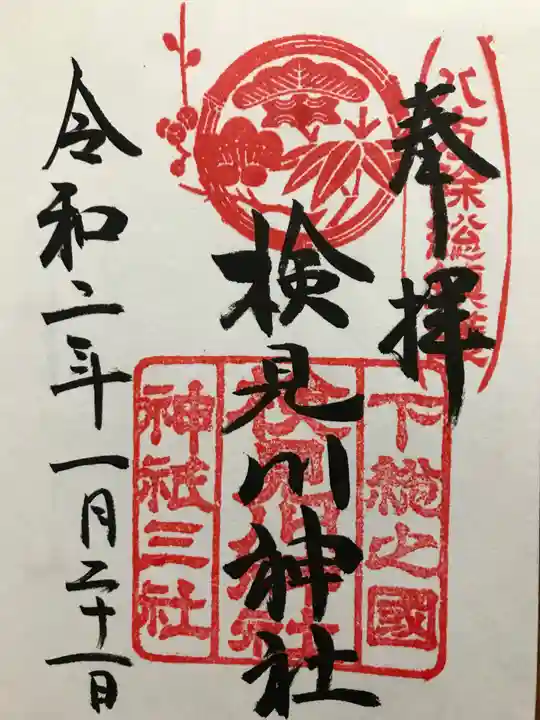 奉拝
八方除総鎮護
検見川神社
下総之國
検見川神社
神祇三社
令和二年一月二十一日